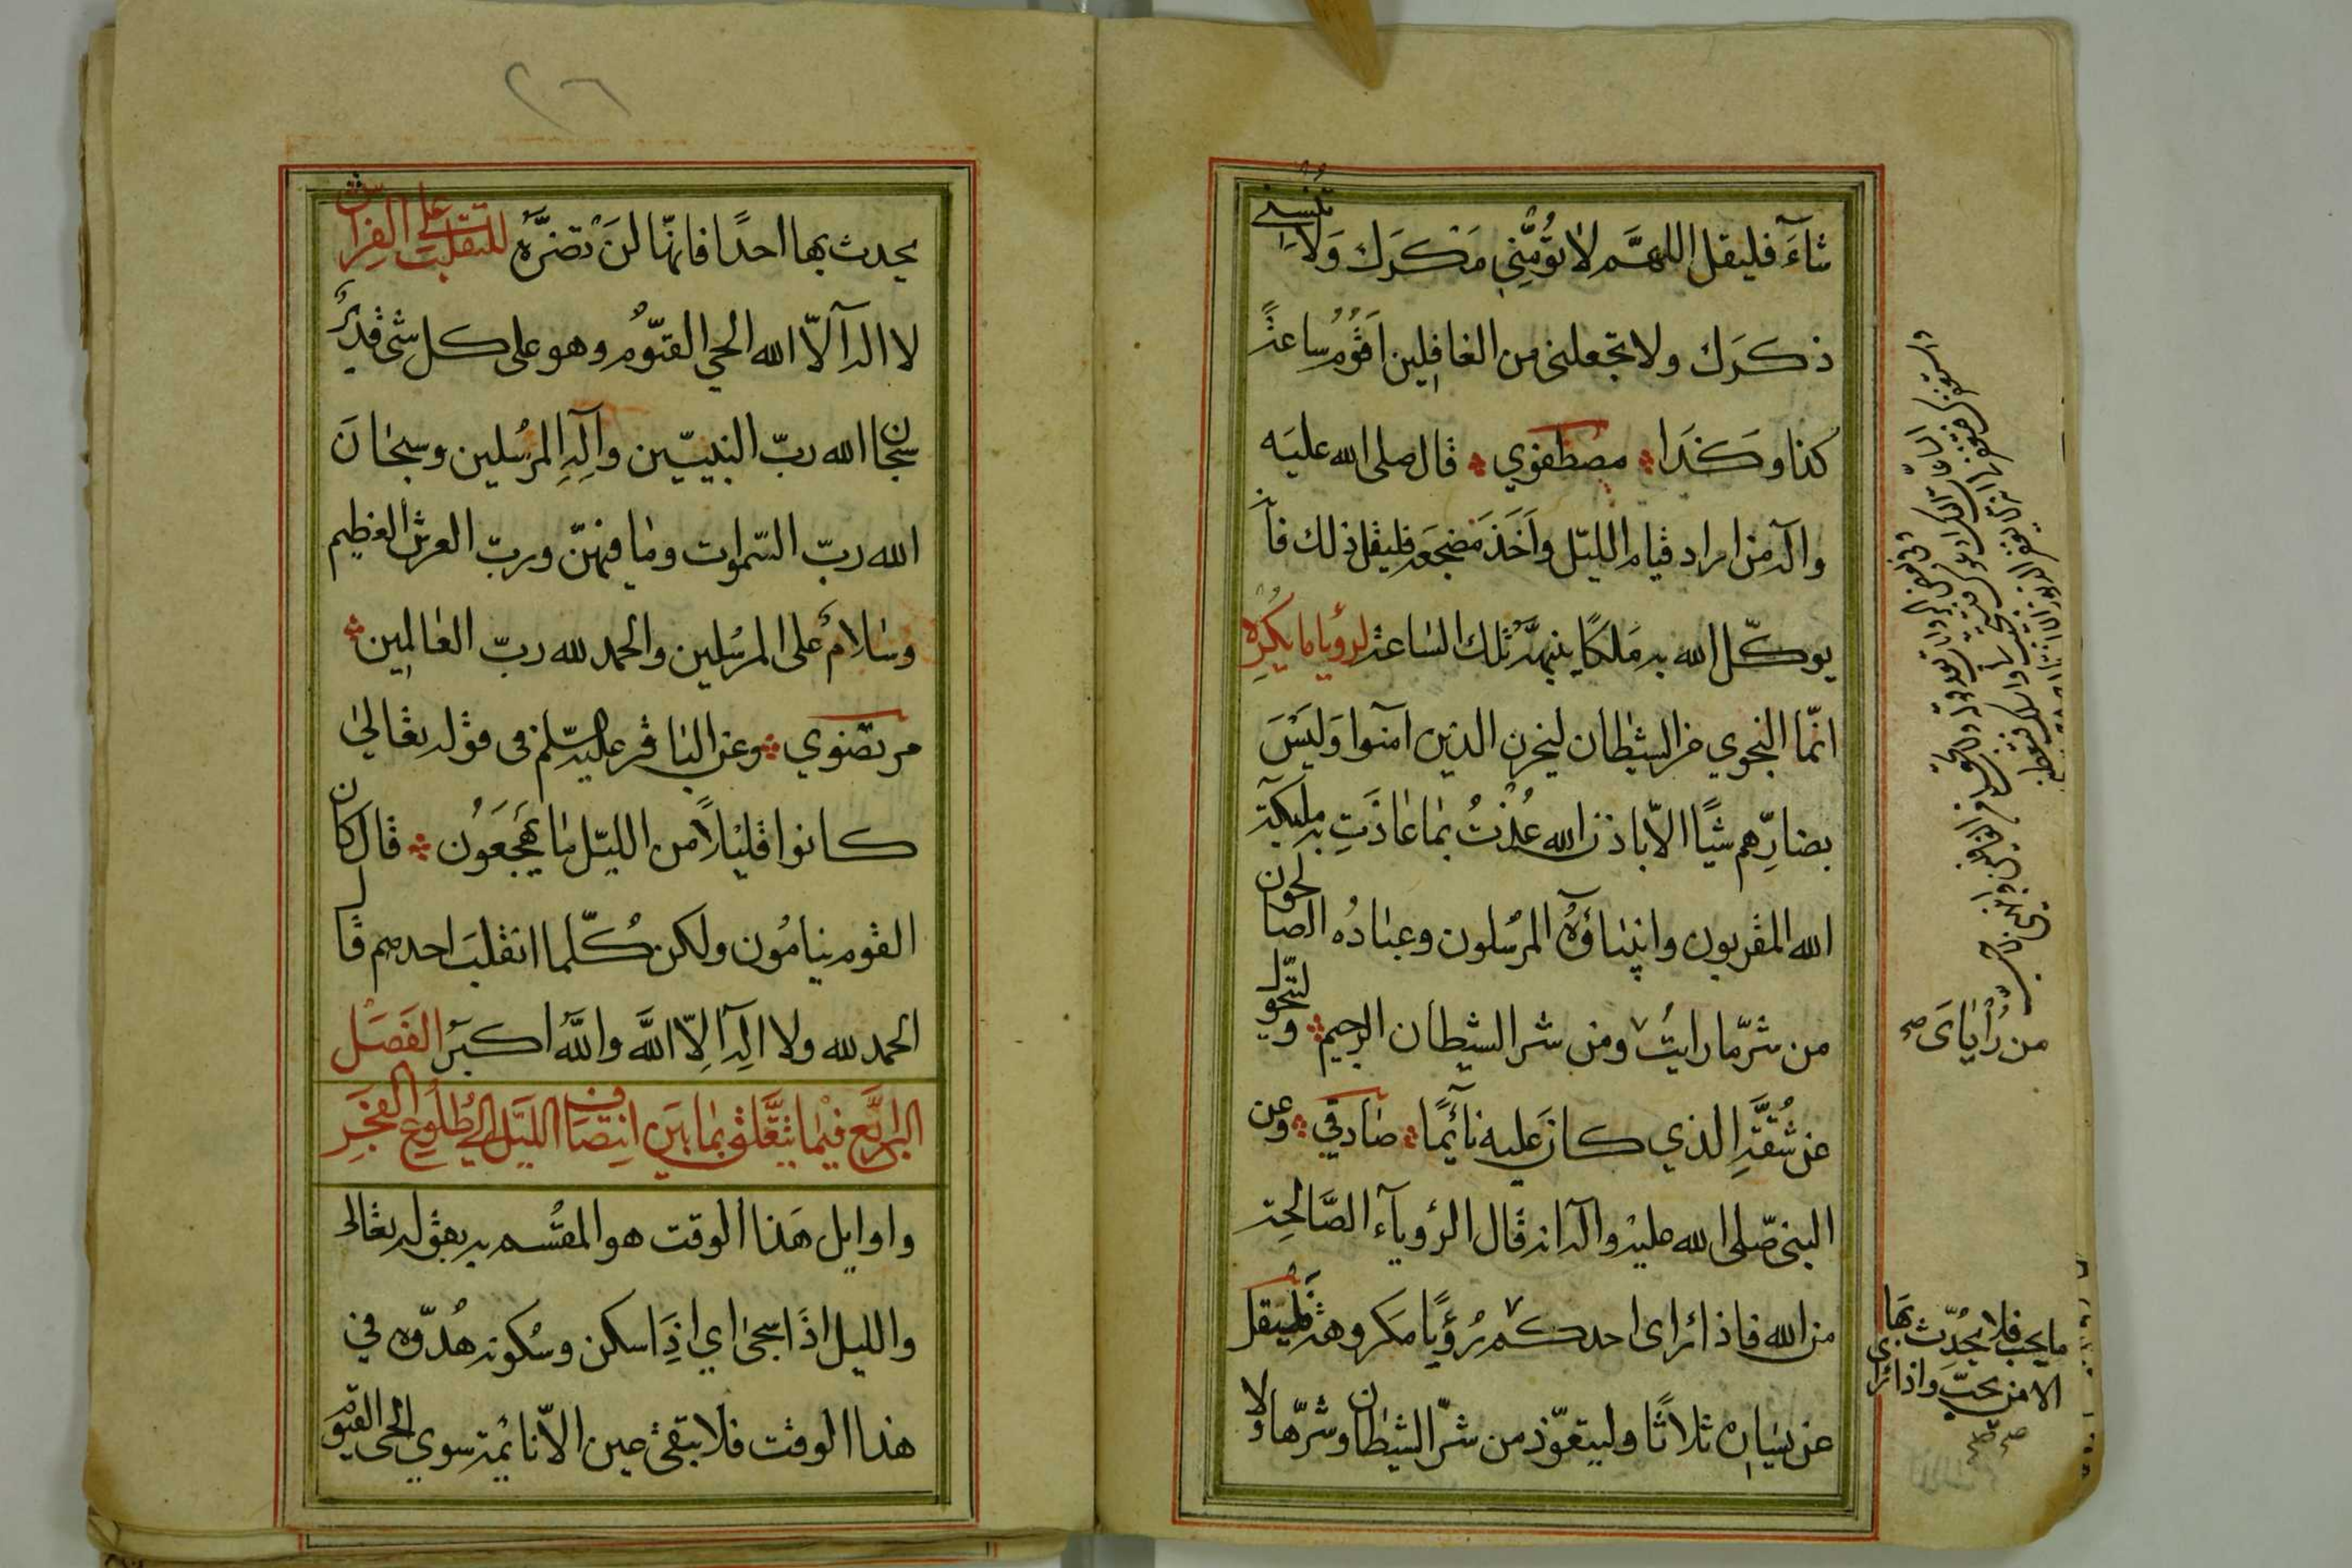 شآءَ فليقل اللهمَّ لا تؤمِّنّي مَكرَك وَلا تُنسني
ذكرَك ولا تجعلنى من الغافِلين اَقُومُ ساعَةَ
كذا وكَذا مصطفوي قال صلى الله عليه
وآله من اراد قيام الليّل وأَخَذَ مَضجَعَه فليقل ذلك فان
يوكّل الله به مَلَكًا ينبهّهُ تلك السّاعة لرؤيا ما يكرِه
انّما النجوي من الشيطان ليحزن الذين آمنوا وَليَسَ
بضارِّهم شيًا الاّ باذن الله عُذتُ بما عَاذَتِ به ملٰئكة
الله المقربون وانبياؤهُ المرسُلون وعبادُه الصالحون
من شرّ ما رايتُ ومن شر الشيطان الرجيم وليتحول
عن شُقّهِ الذي كان عليه نائمًا صادقي وعن
النبى صّلى الله عليه وآله انه قال الرؤيآء الصَّالحة
من الله فاذا رأى احدكم رُؤيًا مكروهة فليقل
عن يسَاره ثلاثًا وليتعوّذ من شرّ الشيطان وشرّها ولا
من رُؤيَاىَ صح
ما يحب فلا يحُدّث بهَا
الا من يحبّ واذا رأى
صح صح
٢٦
يحدث بها احدًا فانهّا لَن تضرَّه للتقلب على الفِراش
لا اله الاّ الله الحي القيّومُ وهو على كل شئ قديرٌ
سبحان الله ربّ النبيّين وآلِهِ المرسُلين وسبحانَ
الله ربّ السّموات وما فيهنّ وربّ العرش العظيم
وسَلامٌ على المرسُلين والحمد لله ربّ العالمين
مرتضوي وعن الباقر عليه السّلم فى قوله تعالىٰ
كانوا قليلاً من الليّل مٰا يَهجَعُون قال كان
القوم ينامُون ولكن كُلّما انقلبَ احدهم قال
الحمد لله ولا اله اِلاّ اللَّه واللَّهُ اكبَر الفَصَل
الرابَّع فيما يتَّعلق بما بَين اِنتصاف الليَّل الى طلُوع الفَجر
واوايل هَذا الوقت هو المقسُم به بقوله تعالى
والليل اذَا سجىٰ اي اِذَا سكن وسُكونه هُدّوه في
هذا الوقت فلا تبقى عين الاّ نائمة سوي الحى القيوّم